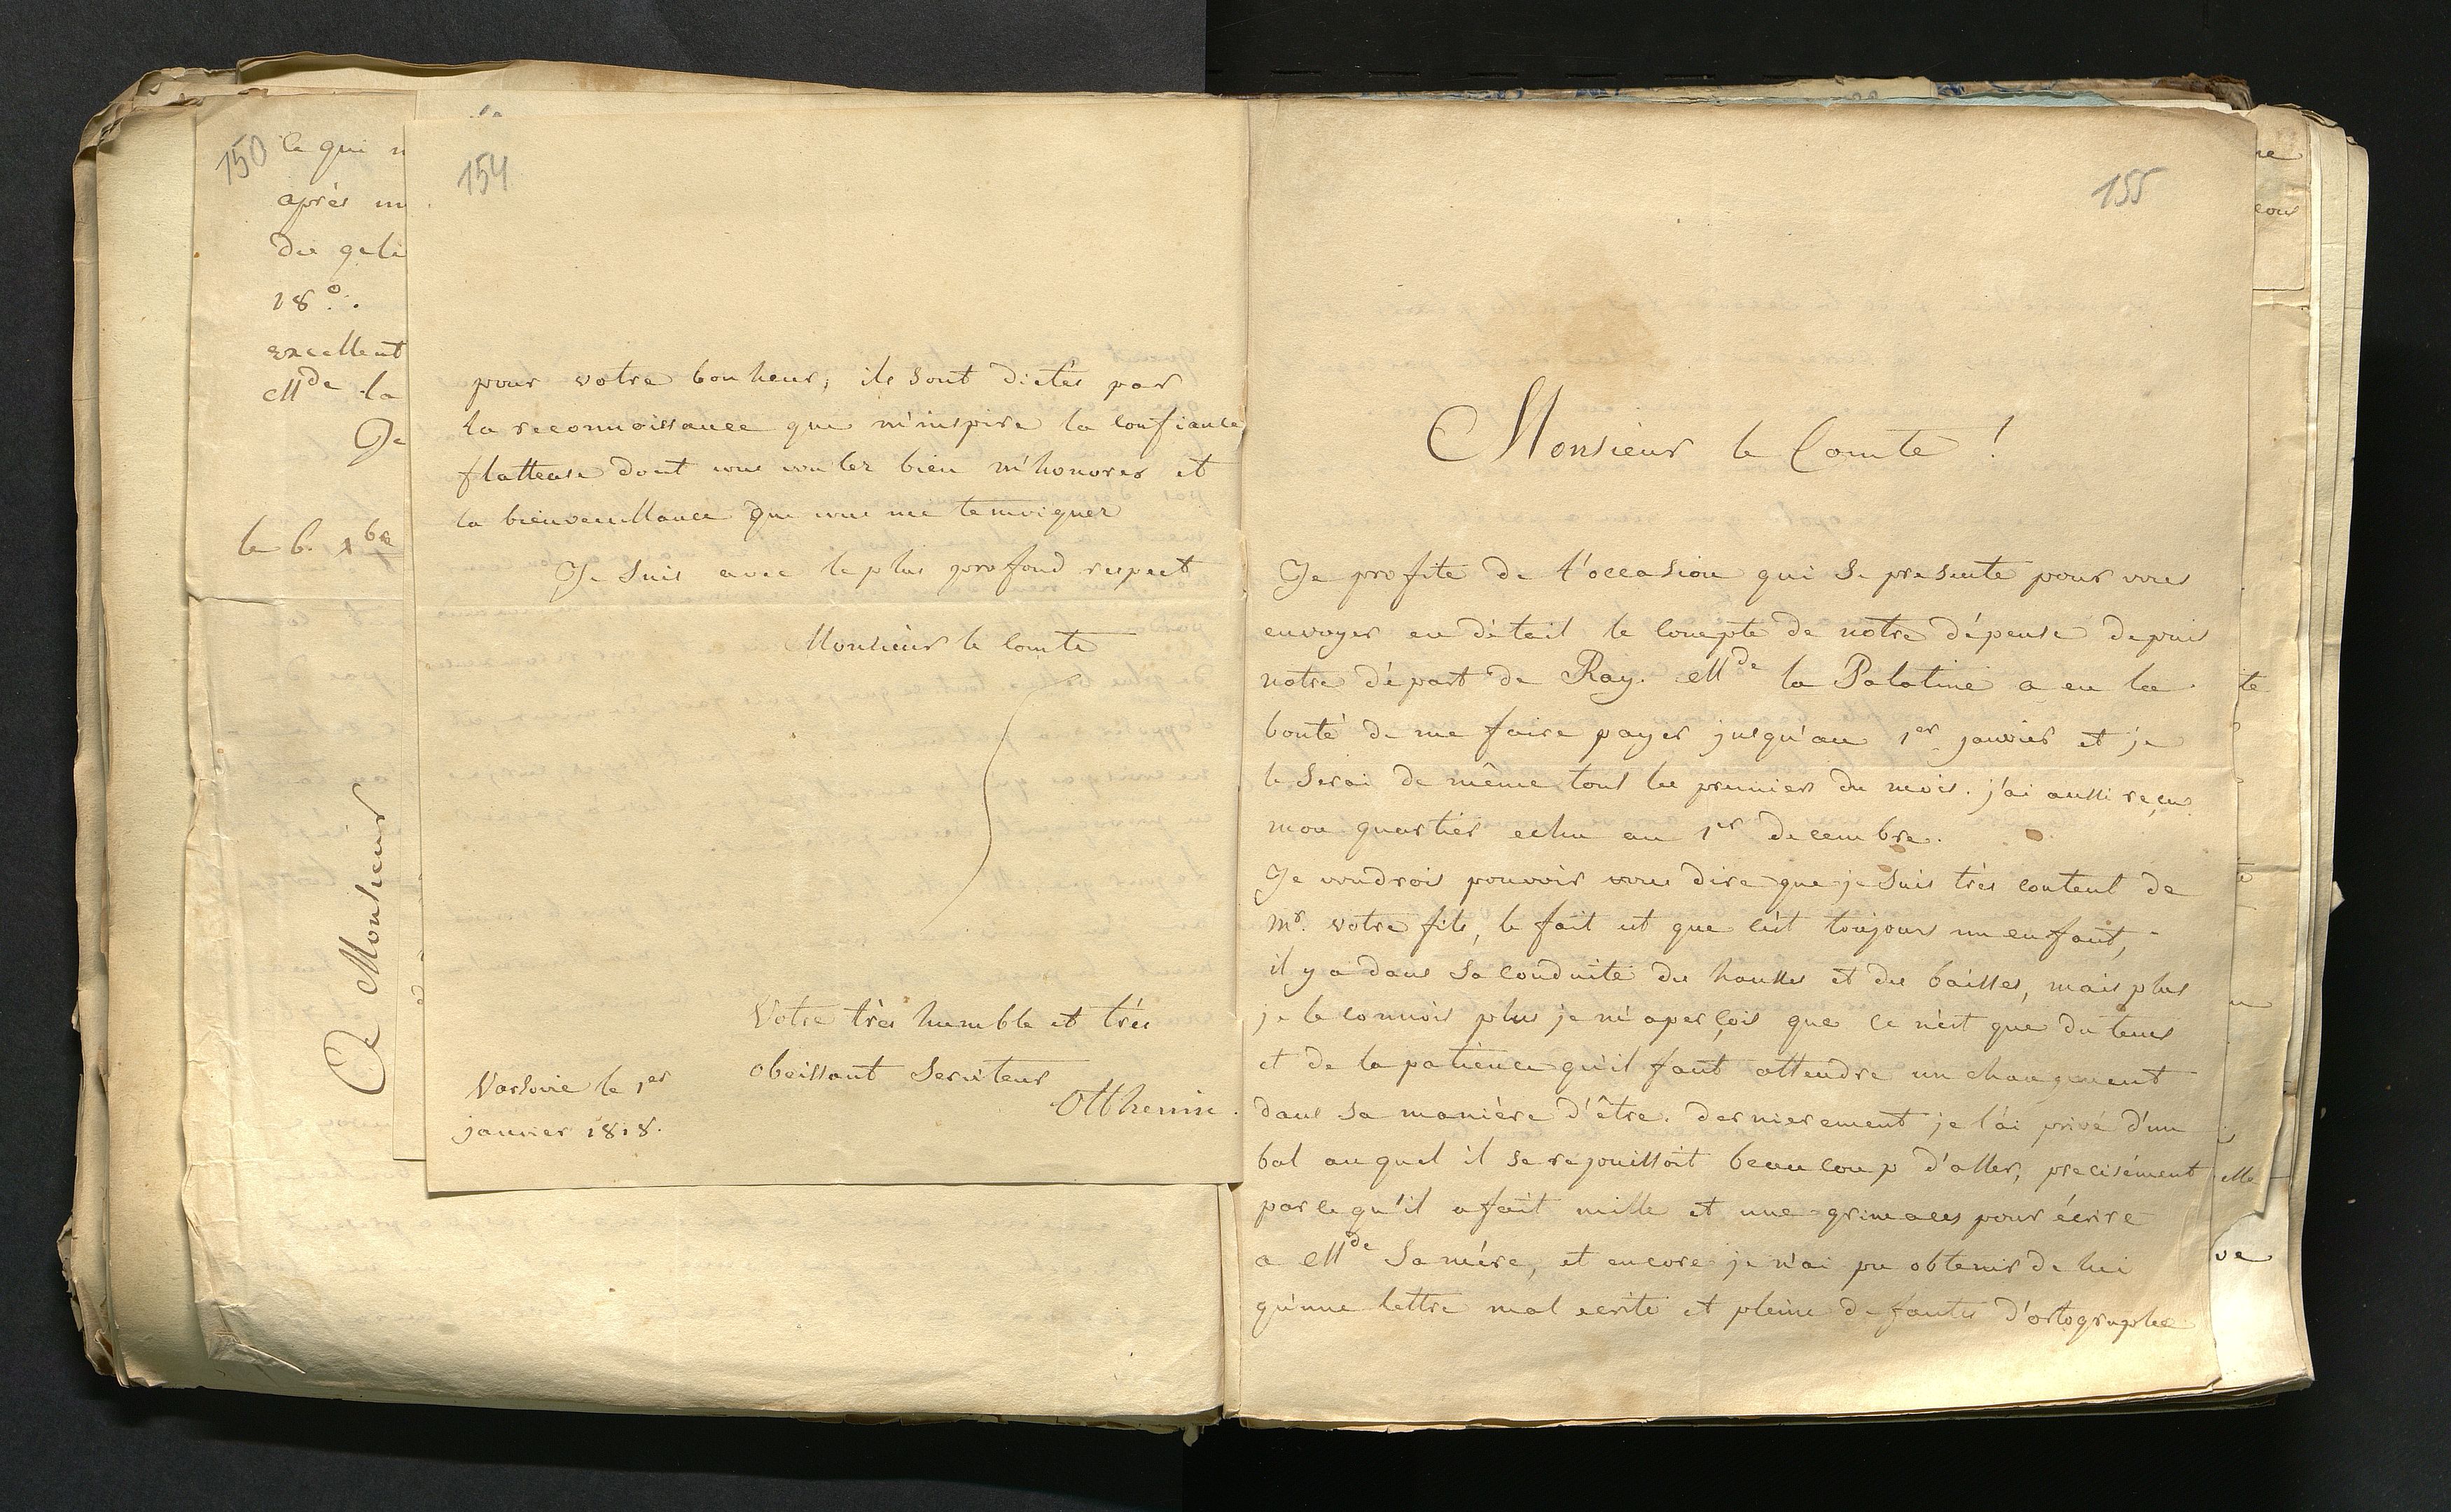 150
ce qui n
après un
du gele
18°.
excellent
Mde la
Je
le 6. Xbre
A Monsieur
154
pour votre bonheur; ils sont dictés par
la reconnoissance que m'inspire la confiance
flatteuse dont vous voulez bien m'honorer et
la bienveuillance que vous me temoignez
Je suis avec le plus profond respect
Monsieur le Comte
Votre très humble et très
obeissant Serviteur
Othenin.
Varsovie le 1er
janvier 1818.
155
Monsieur le Comte !
Je profite de l'occasion qui se presente pour vous
envoyer en détail le compte de notre dépense depuis
notre départ de Ray. Mde la Palatine a eu la
bonté de me faire payer jusqu'au 1er janvier et je
le serai de même tous les premiers du mois. j'ai aussi reçu
mon quartier echu au 1er decembre.
Je voudrois pouvoir vous dire que je suis très content de
mr. votre fils, le fait est que c'est toujours un enfant,
il y a dans sa conduite des hausses et des baisses, mais plus
je le connois plus je m'aperçois que ce n'est que du tems
et de la patience qu'il faut attendre un changement
dans sa manière d'être. dernierement je l'ai privé d'un
bal auquel il se rejouissoit beaucoup d'aller, precisément
parcequ'il a fait mille et une grimaces pour écrire
a Mde sa mére, et encore je n'ai pu obtenir de lui
qu'une lettre mal ecrite et pleine de fautes d'ortographe
te
elle
ve